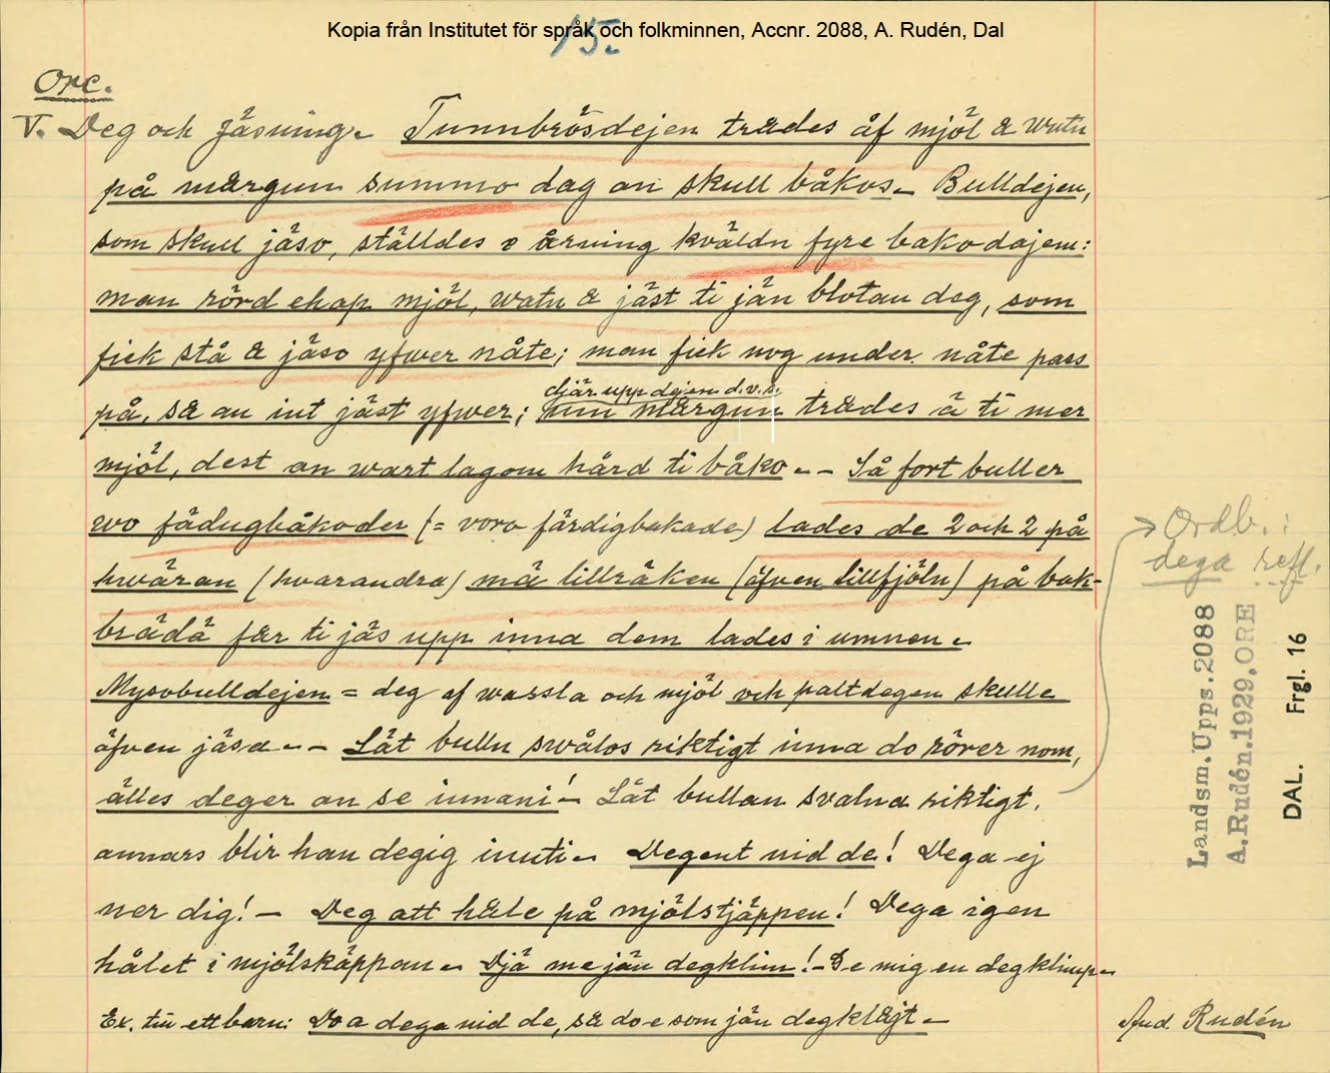 Kopia från Institutet för språk och folkminnen, Accnr. 2088, A. Rudén, Dal
15.
Ore.
V. Deg och jäsning. Tunnbrösdejen trades åf mjöl & watn
på margun summo dag an skull båkos. Bulldejen,
som skull jäso, ställdes o årning kväldn fyre bakodajen:
man rörd ehap mjöl, watn & jäst ti jän blotan deg, som
fick stå & jäso yfwer nåte; man fick nog under nåte pass
på, sa an int jäst yfwer;
djär upp dejen d.v.s.
um margun trades ä ti mer
mjöl, dest an wart lagom hård ti båko. - Så fort buller
wo fädugbåkoder (= voro färdigbakade) lades de 2 och 2 på
hwäran (hvarandra) mä lillräken (äfven lillfjöln) på bak-
brädä får ti jäs upp inna dem lades i umnen.
Mysobulldejen = deg af wassla och mjöl och paltdegen skulle
äfven jäsa. - Lät bulln swålos riktigt inna do rörer nom,
älles deger an se innani! - Låt bullan svalna riktigt,
annars blir han degig inuti. Degent nid de! Dega ej
ner dig! - Deg att hale på mjölstjäppen! Dega igen
hålet i mjölskäppan. Djä me jän degklim! - Ge mig en degklimp.
Ex. till ett barn: Do a dega nid de, sa do e som jän degklajt.
And. Rudén
→ Ordb.:
dega refl.
Landsm. Upps. 2088
A. Rudén. 1929, ORE
DAL. Frgl. 16